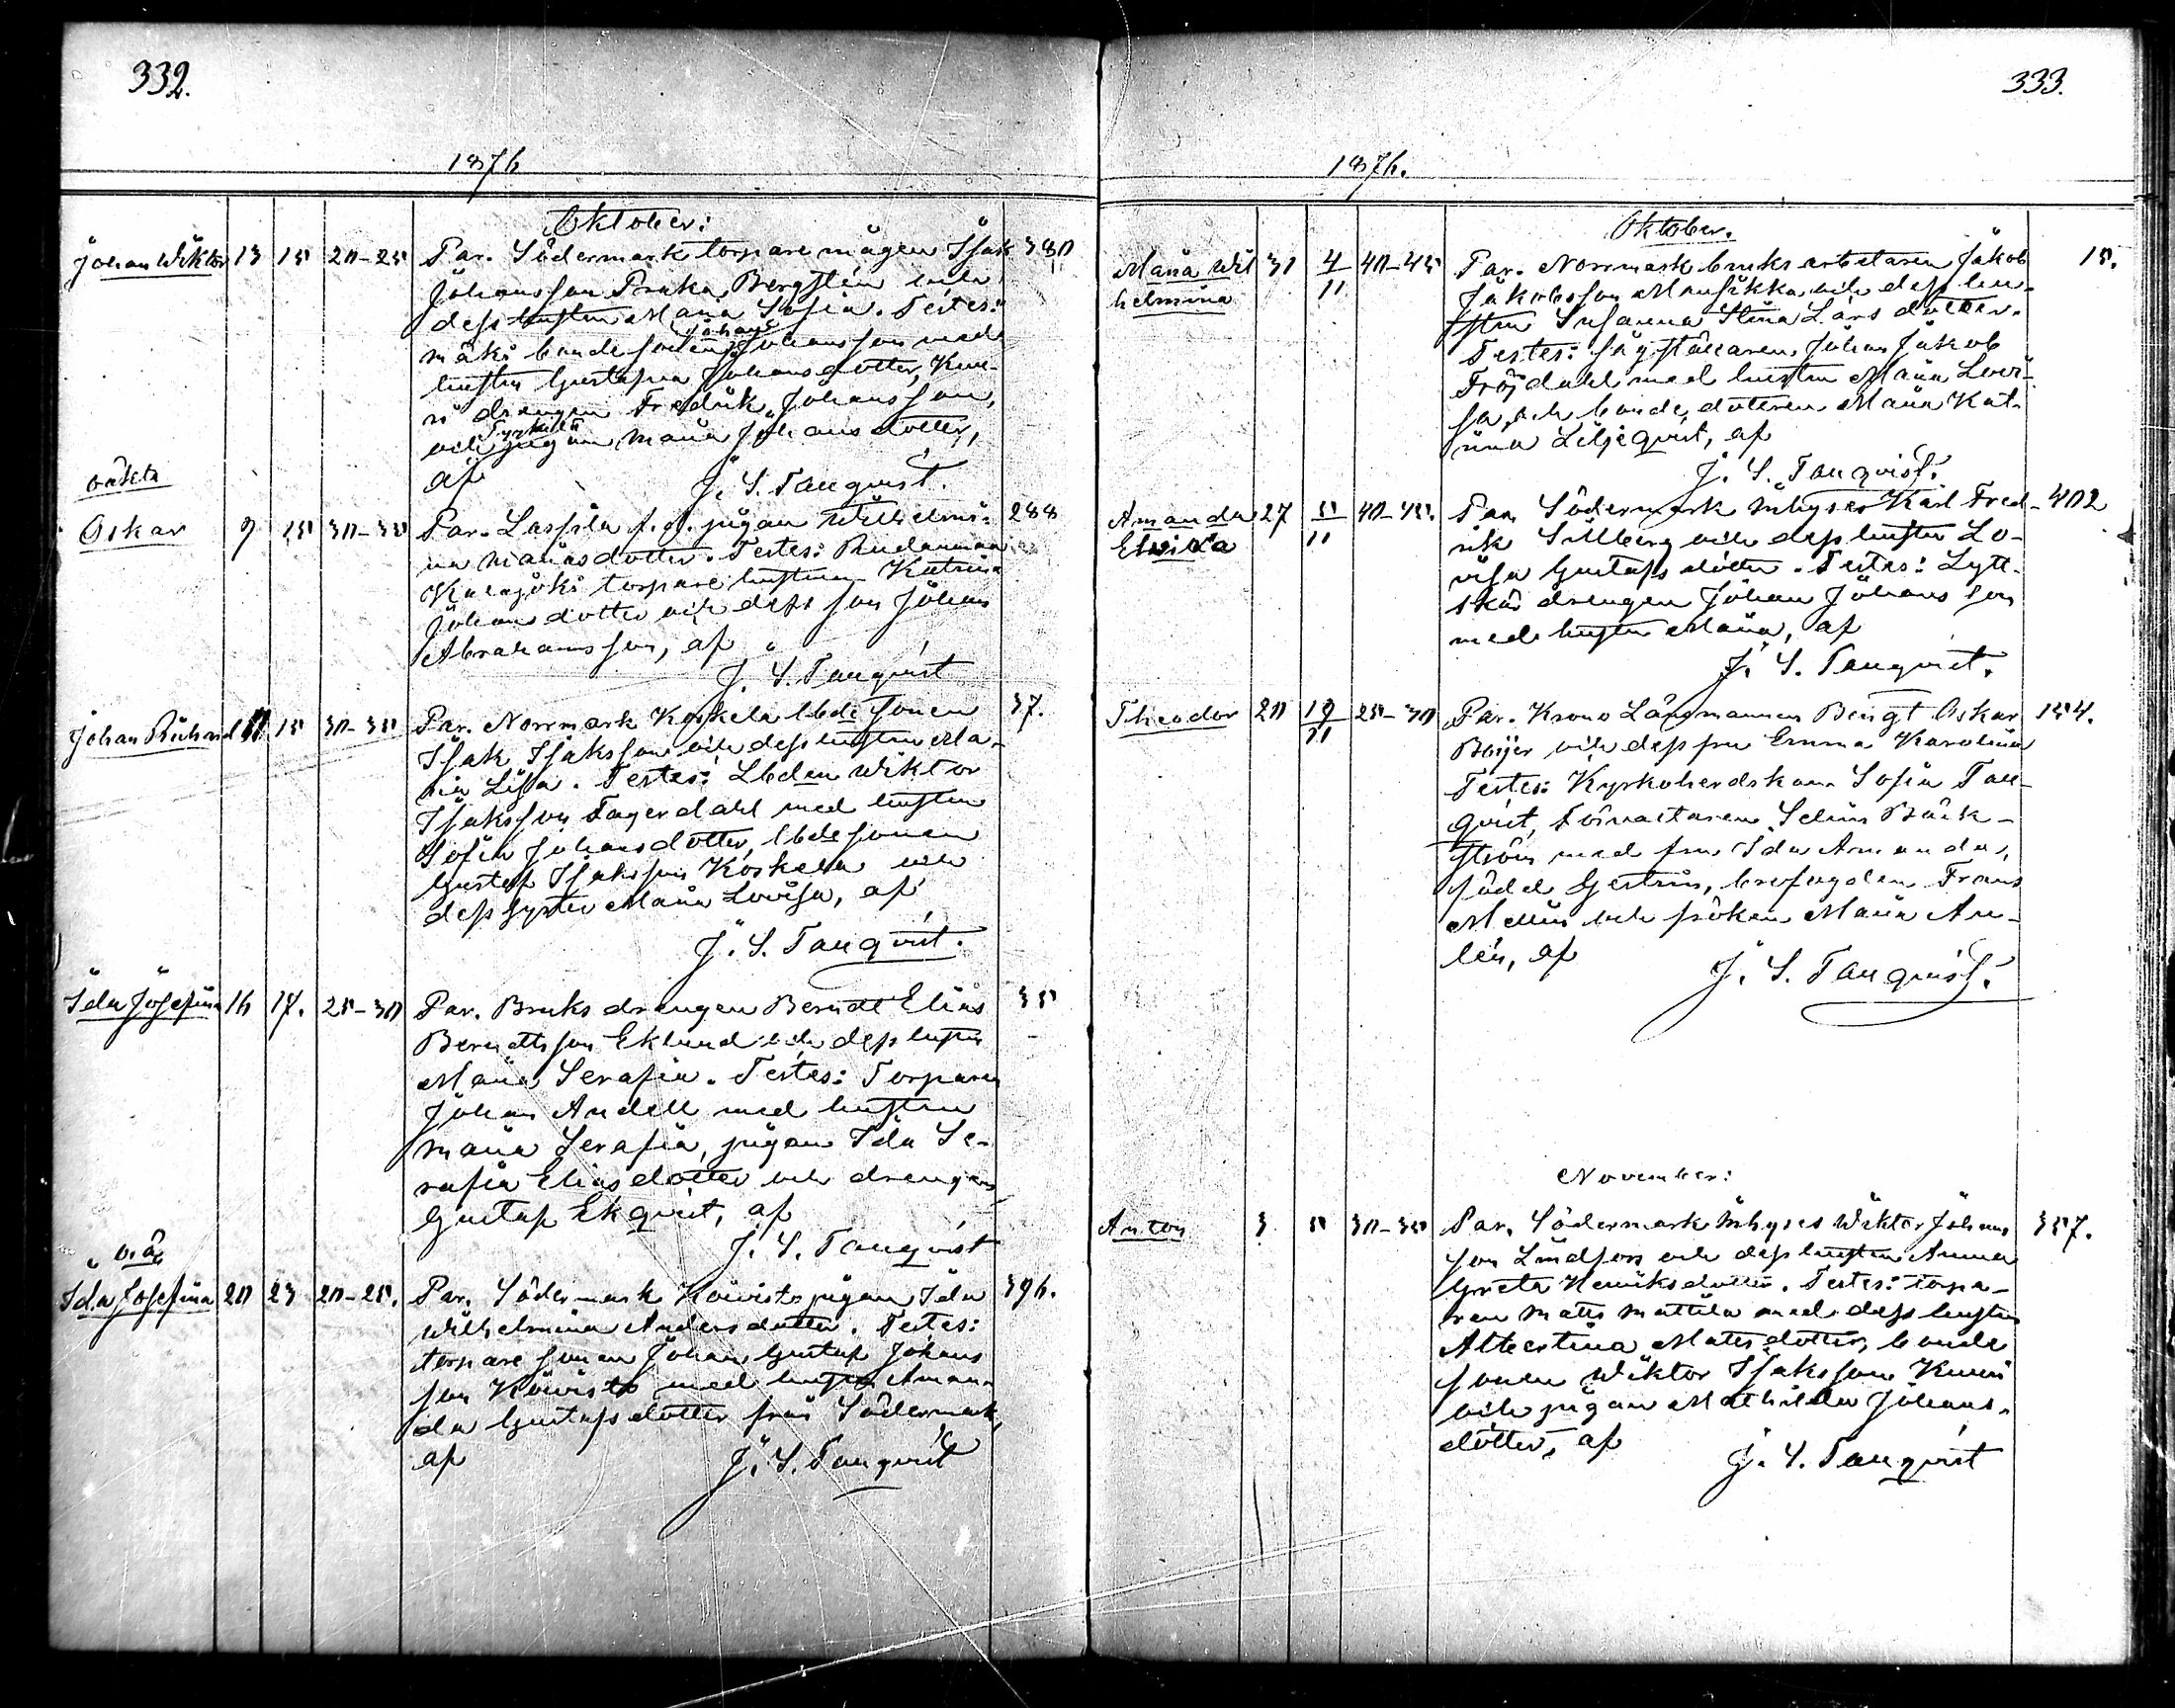 332.
1876
Oktober:
Johan Wiktor 13 15 20-25 Par. Södermark torpare mågen Isak 380
Johansson Bergsten och
dess hustru Maria Sofia. Testes:
mäki bondesonen Johan Johansson med
hustru Gustafva Johansdotter,
drengen Fredrik Johansson,
och pigan Maria Johansdotter,
af J. S. Tanqvist.
oäkta
Oskar 9 15 30-35 Par. Lassila pigan Wilhelmi- 288
na Mariasdotter. Testes:
torpare hustrun Katrina
Johansdotter och dess son Johan
Abrahamsson, af
J. S. Tanqvist
Johan Richard 11 15 30-35 Par. Norrmark Koskela lbde sonen 37.
Isak Isaksson och dess hustru Ma-
ria Lisa. Testes: Lbden Wiktor
Isaksson Fagerdahl med hustru
Sofia Johansdotter, lbde sonen
Gustaf Isaksson Koskela och
dess syster Maria Lovisa, af
J. S. Tanqvist.
Ida Josefina 16 17. 25-30 Par. Bruksdrengen Berndt Elias 35
Berndtsson Eklund och dess hustru
Maria Serafia. Testes: Torparen
Johan Andell med hustru
Maria Serafia, pigan Ida Se-
rafia Eliasdotter och drengen
Gustaf Ekqvist, af
J. S. Tanqvist
oäk
Ida Josefina 20 23 20-25. Par. Södermark Koivisto pigan Ida 396.
Wilhelmina Andersdotter. Testes:
torpare sonen Johan Gustaf Johans
son Koivisto med hustru Aman-
da Gustafsdotter från Södermark,
af J. S. Tanqvist
333.
1876.
Oktober.
Maria Wil 31 4/11 40-45 Par. Norrmark bruks arbetaren Jakob 15.
helmina Jakobsson Mansikka och dess hu-
stru Susanna Stina Larsdotter.
Testes: Johan Jakob
Fröjdahl med hustru Maria Lovi-
sa, och bonde dottren Maria Kat-
rina Liljeqvist, af
J. S. Tanqvist.
Amanda 27 5/11 40-45. Par. Södermark Inhyses Karl Fred- 402
Elvira rik Sillberg och dess hustru Lo-
visa Gustafsdotter. Testes: Lytt-
skär drengen Johan Johansson
med hustru Maria, af
J. S. Tanqvist.
Theodor 20 19/11 25-30 Par. Krono Länsmannen Bengt Oskar 154.
och dess fru Emma Karolina
Testes: Kyrkoherdskan Sofia Tan-
qvist, Förvaltaren Selim Bäck-
ström med fru Ida Amanda,
född Gestrin, brofogden Frans
Mellin och fröken Maria
, af
J. S. Tanqvist.
November:
Anton 3 5 30-35 Par. Södermark Inhyses Wiktor Johans 357.
son Lindfors och dess hustru Anna
Greta Henriksdotter. Testes: torpa-
ren Matts Mattila med dess hustru
Albertina Mattsdotter, bonde
sonen Wiktor Isaksson
och pigan Mathilda Johans-
dotter, af J. S. Tanqvist